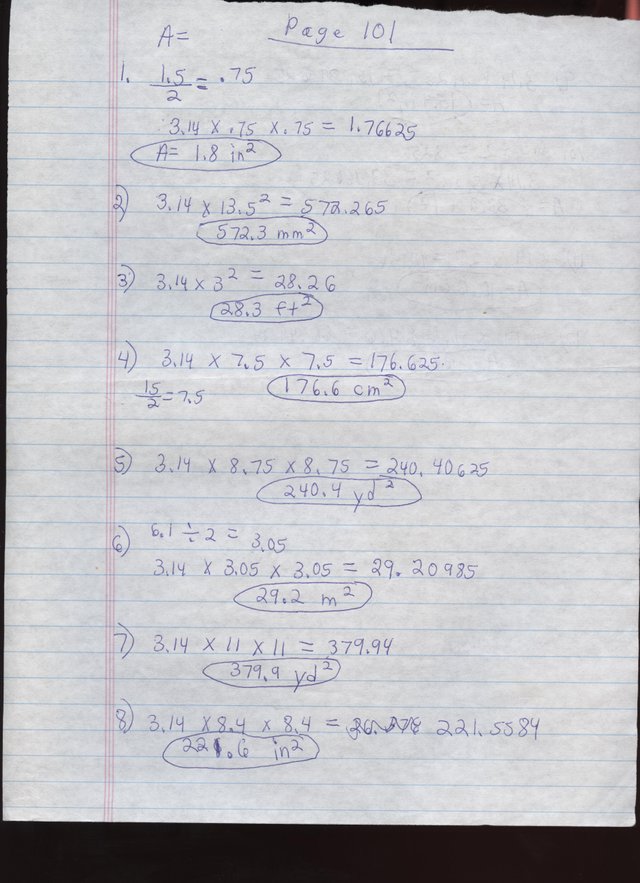 A= Page 101
1. 1.5/2 = .75
3.14 x .75 x .75 = 1.76625
A= 1.8 in²
2) 3.14 x 13.5² = 572.265
572.3 mm²
3) 3.14 x 3² = 28.26
28.3 ft²
4) 3.14 x 7.5 x 7.5 = 176.625
15/2 = 7.5 176.6 cm²
5) 3.14 x 8.75 x 8.75 = 240.40625
240.4 yd²
6) 6.1 ÷ 2 = 3.05
3.14 x 3.05 x 3.05 = 29.20985
29.2 m²
7) 3.14 x 11 x 11 = 379.94
379.9 yd²
8) 3.14 x 8.4 x 8.4 = 221.5584
221.6 in²